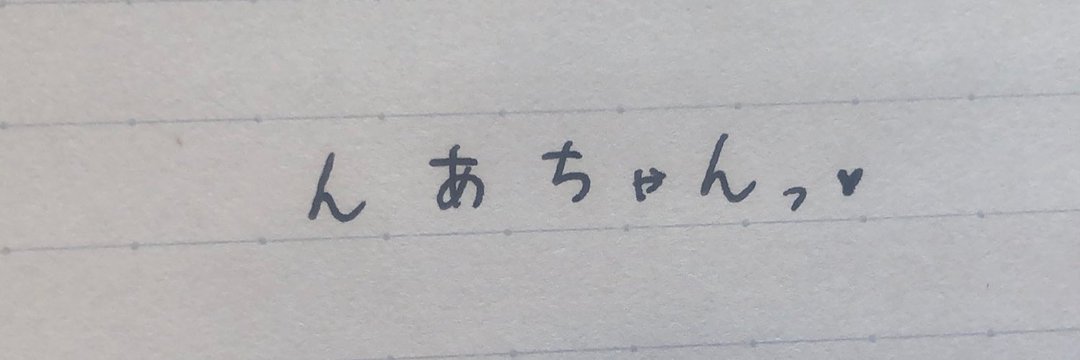 んあちゃんっ♥